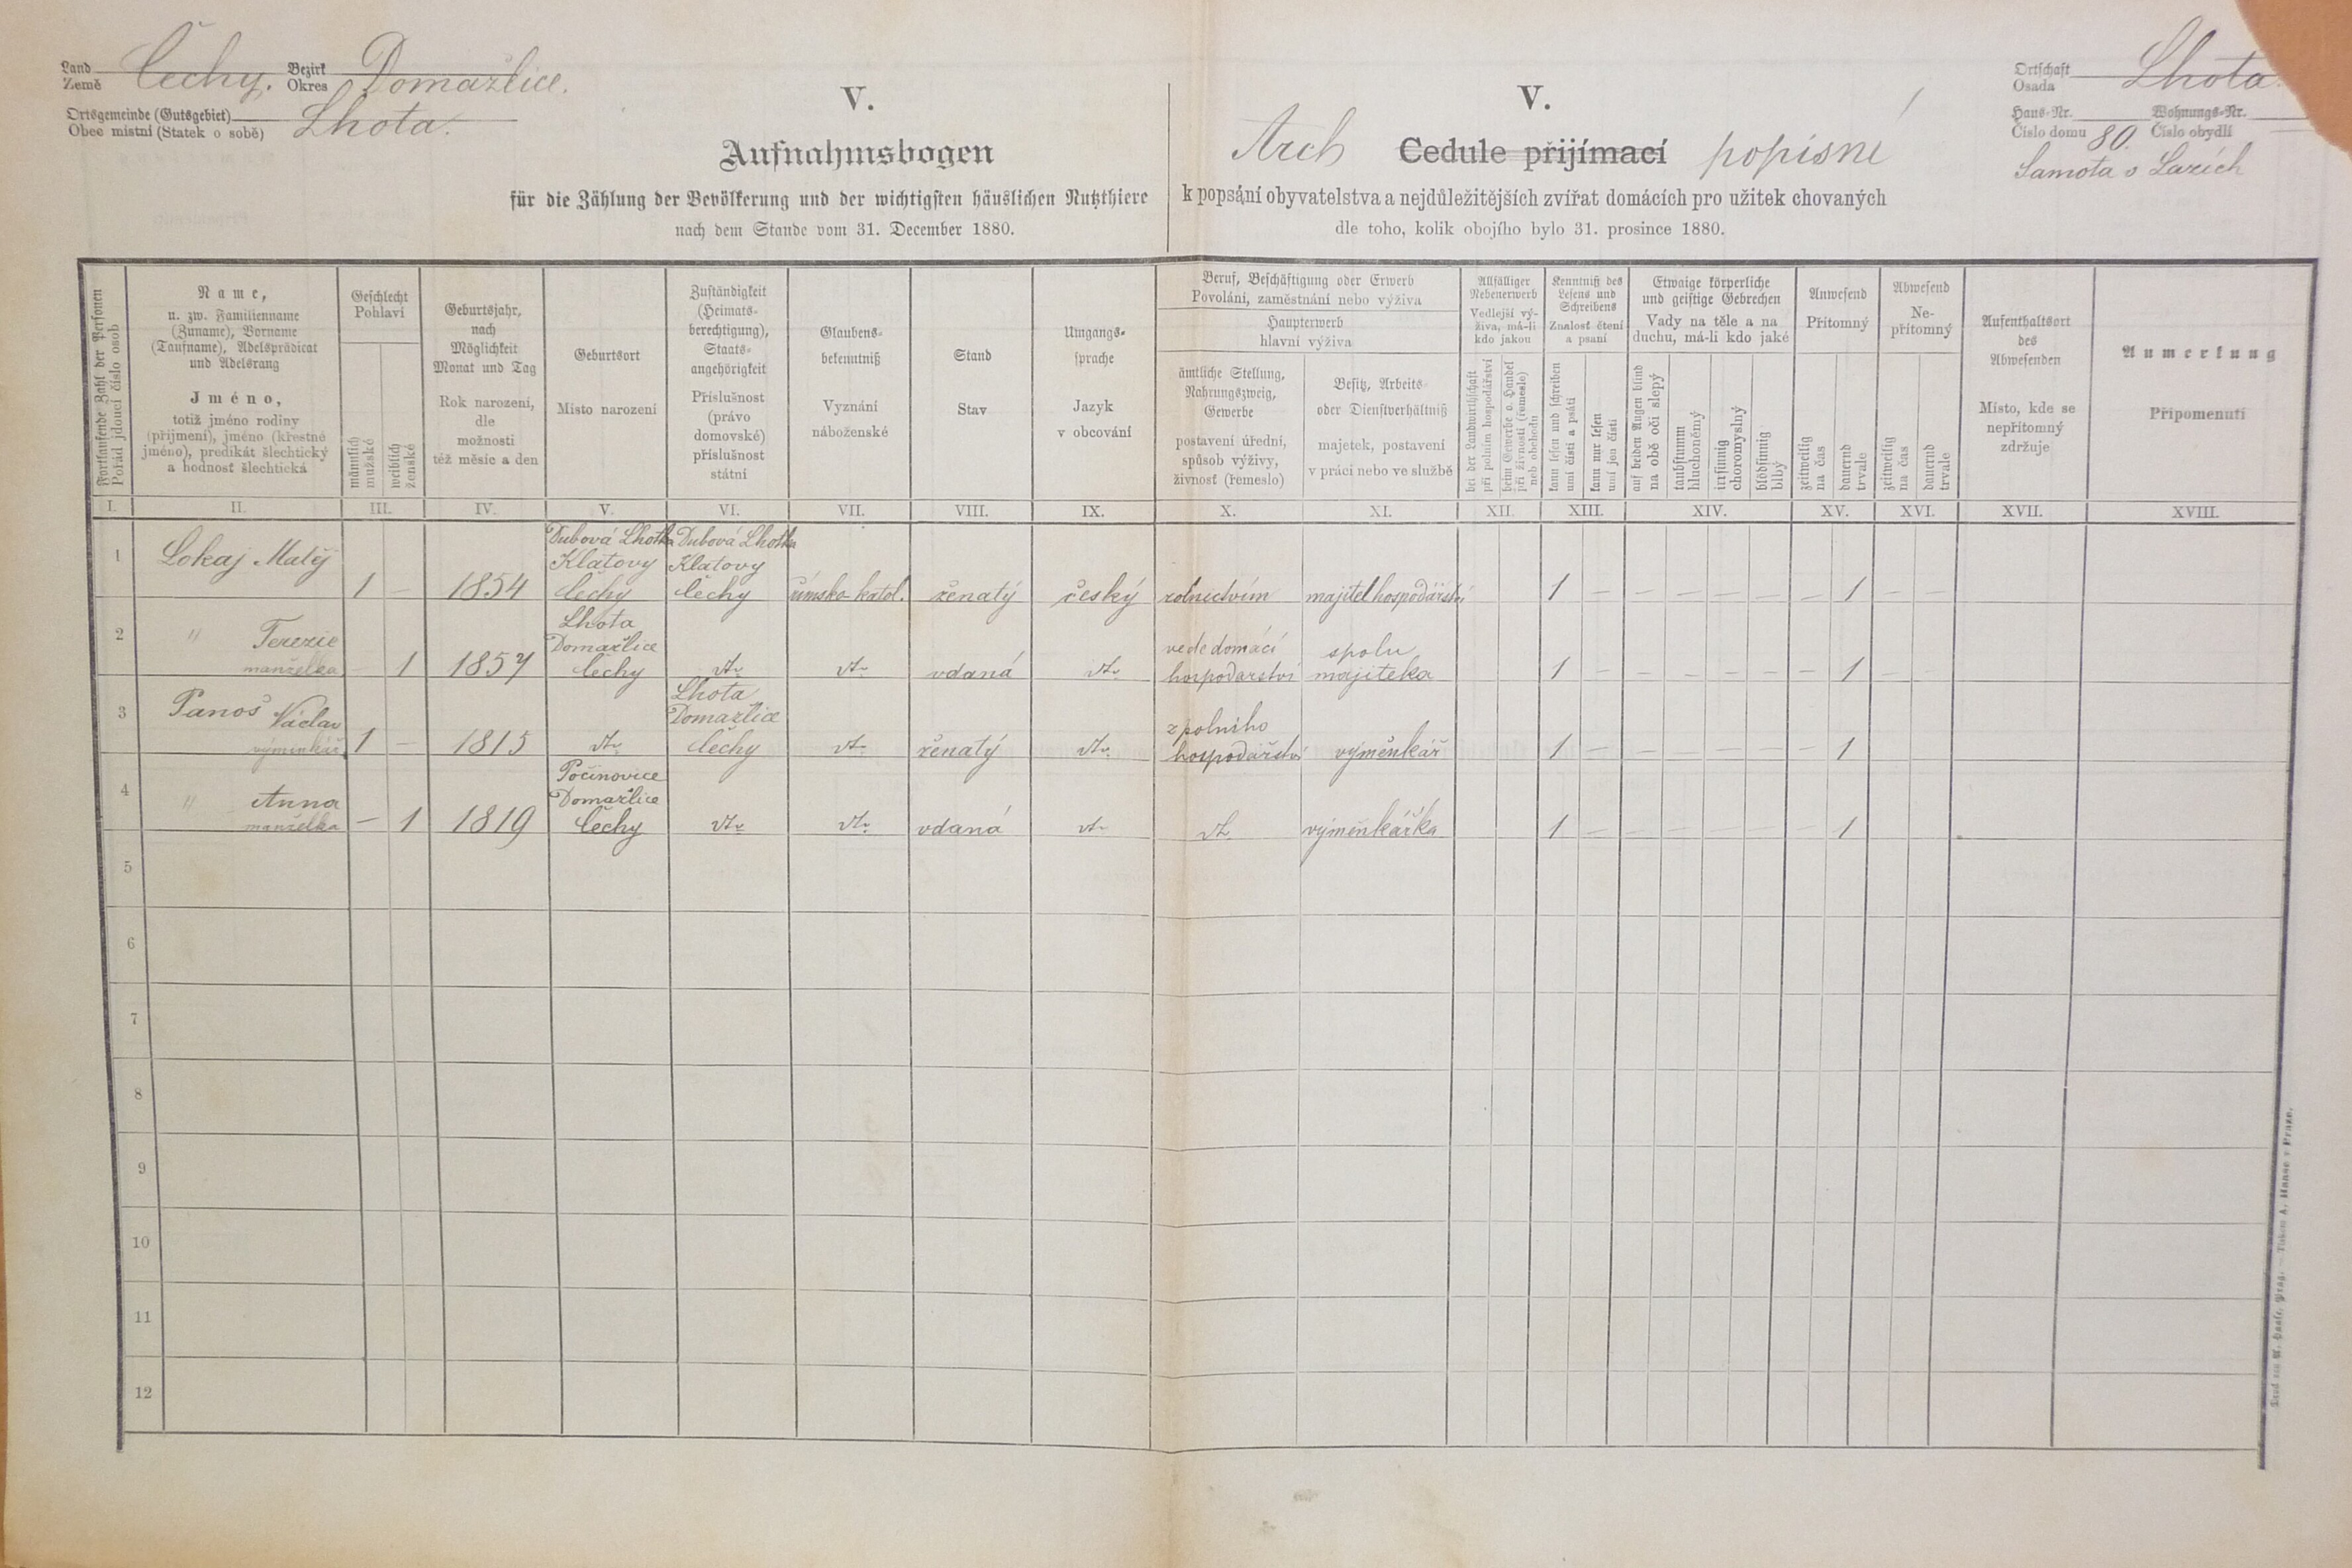 Land Čechy. Bezirk Domažlice.
Země Okres
Ortsgemeinde (Gutsgebiet) Lhota.
Obec místní (Statek o sobě)
V.
Aufnahmsbogen
für die Zählung der Bevölkerung und der wichtigsten häuslichen Nutzthiere
nach dem Stande vom 31. December 1880.
V.
Arch Cedule přijímací popisní
k popsání obyvatelstva a nejdůležitějších zvířat domácích pro užitek chovaných
dle toho, kolik obojího bylo 31. prosince 1880.
Ortschaft Lhota.
Osada
Haus-Nr. Wohnungs-Nr.
Číslo domu 80. Číslo obydlí
Samota v Lazích
Fortlaufende Zahl der Personen
Pořád jdoucí číslo osob
Name,
u. zw. Familienname
(Zuname), Vorname
(Taufname), Adelsprädicat
und Adelsrang
Jméno,
totiž jméno rodiny
(příjmení), jméno (křestné
jméno), predikát šlechtický
a hodnosť šlechtická
Geschlecht
Pohlaví
männlich
mužské
weiblich
ženské
Geburtsjahr,
nach
Möglichkeit
Monat und Tag
Rok narození,
dle
možnosti
též měsíc a den
Geburtsort
Místo narození
Zuständigkeit
(Heimats-
berechtigung),
Staats-
angehörigkeit
Příslušnost
(právo
domovské)
příslušnost
státní
Glaubens-
bekenntniß
Vyznání
náboženské
Stand
Stav
Umgangs-
sprache
Jazyk
v obcování
Beruf, Beschäftigung oder Erwerb
Povolání, zaměstnání nebo výživa
Haupterwerb
hlavní výživa
ämtliche Stellung,
Nahrungszweig,
Gewerbe
postavení úřední,
spůsob výživy,
živnosť (řemeslo)
Besitz, Arbeits-
oder Dienstverhältniß
majetek, postavení
v práci nebo ve službě
Allfälliger
Nebenerwerb
Vedlejší vý-
živa, má-li
kdo jakou
bei der Landwirthschaft
při polním hospodářství
beim Gewerbe o. Handel
při živnosti (řemeslo)
neb obchodu
Kenntniß des
Lesens und
Schreibens
Znalosť čtení
a psaní
kann lesen und schreiben
umí čísti a psáti
kann nur lesen
umí jen čísti
Etwaige körperliche
und geistige Gebrechen
Vady na těle a na
duchu, má-li kdo jaké
auf beiden Augen blind
na obě oči slepý
taubstumm
hluchoněmý
irrsinnig
choromyslný
blödsinnig
blbý
Anwesend
Přítomný
zeitweilig
na čas
dauernd
trvale
Abwesend
Ne-
přítomný
zeitweilig
na čas
dauernd
trvale
Aufenthaltsort
des
Abwesenden
Místo, kde se
nepřítomný
zdržuje
Anmerkung
Připomenutí
I. II. III. IV. V. VI. VII. VIII. IX. X. XI. XII. XIII. XIV. XV. XVI. XVII. XVIII.
Dubová Lhotka Dubová Lhotka
1 Lokaj Matěj Klatovy Klatovy
1 – 1854 Čechy Čechy římsko-katol. ženatý český rolnictvím majitel hospodářství 1 – – – – – – 1 – –
Lhota
2 " Terezie Domažlice vede domácí spolu
manželka – 1 1857 Čechy dtto dtto vdaná dtto hospodarství majitelka 1 – – – – – – 1 –
Lhota
3 Panoš Václav Domažlice z polního
výminkář 1 – 1815 dtto Čechy dtto ženatý dtto hospodářství výměnkář 1 – – – – – – 1
Pocinovice
4 " Anna Domažlice
manželka – 1 1819 Čechy dtto dtto vdaná dtto dtto výměnkářka 1 – – – – – – 1
5
6
7
8
9
10
11
12
Druck von A. Haase, Prag. — Tiskem A. Haase v Praze.